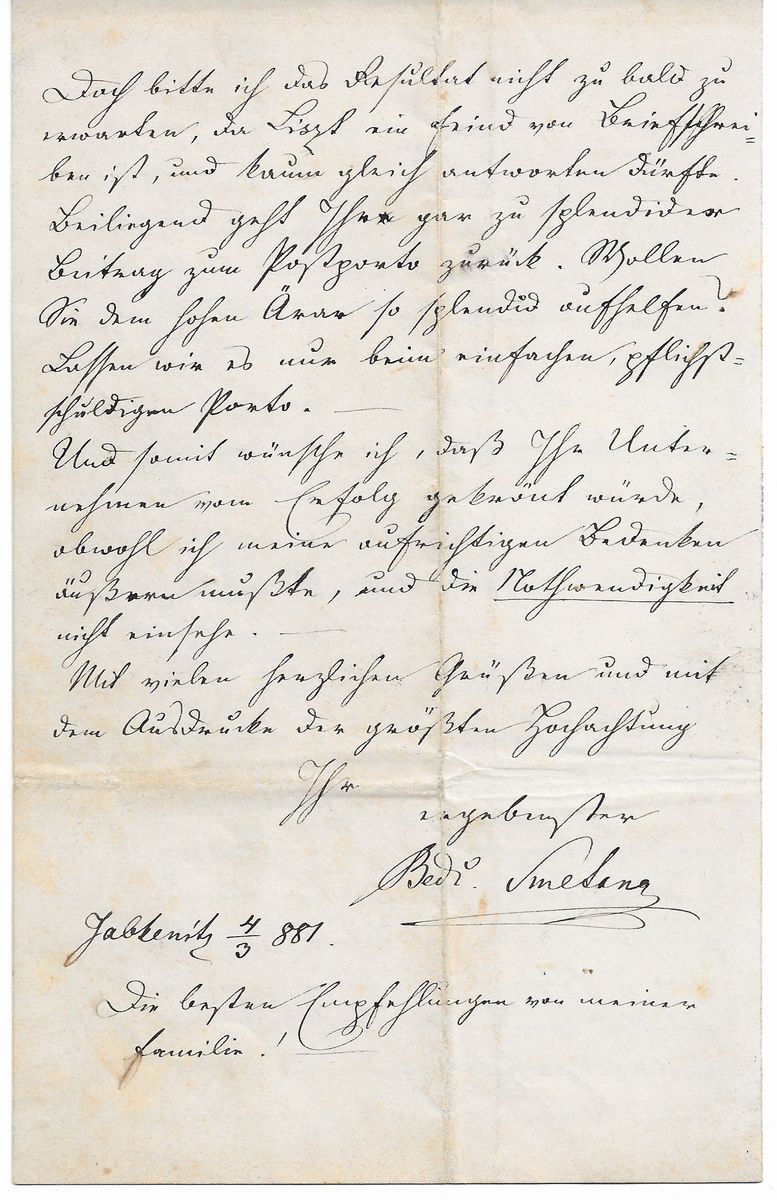 Doch bitte ich das Resultat nicht zu bald zu
erwarten, da Liszt ein Feind von Briefschrei=
ben ist, und kaum gleich antworten dürfte.
Beiliegend geht Ihr gar zu splendider
Beitrag zum Postporto zurück. Wollen
Sie dem hohen Ärar so splendid aufhelfen?
Lassen wir es nur beim einfachen, pflicht=
schuldigen Porto. —
Und somit wünsche ich, daß Ihr Unter=
nehmen vom Erfolg gekrönt würde,
obwohl ich meine aufrichtigen Bedenken
äußern mußte, und die Nothwendigkeit
nicht einsehe. —
Mit vielen herzlichen Grüßen und mit
dem Ausdrucke der größten Hochachtung
Ihr
ergebenster
Bedř. Smetana
Jabkenitz 4/3 881.
Die besten Empfehlungen von meiner
Familie!